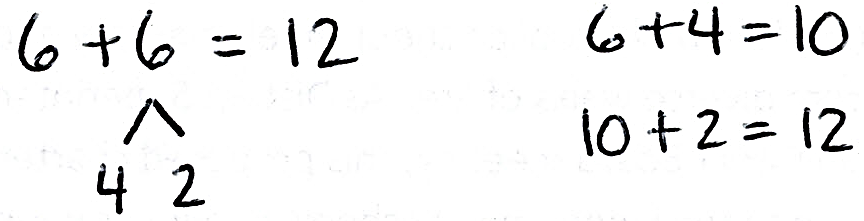 6 + 6 = 12
4 2
6 + 4 = 10
10 + 2 = 12